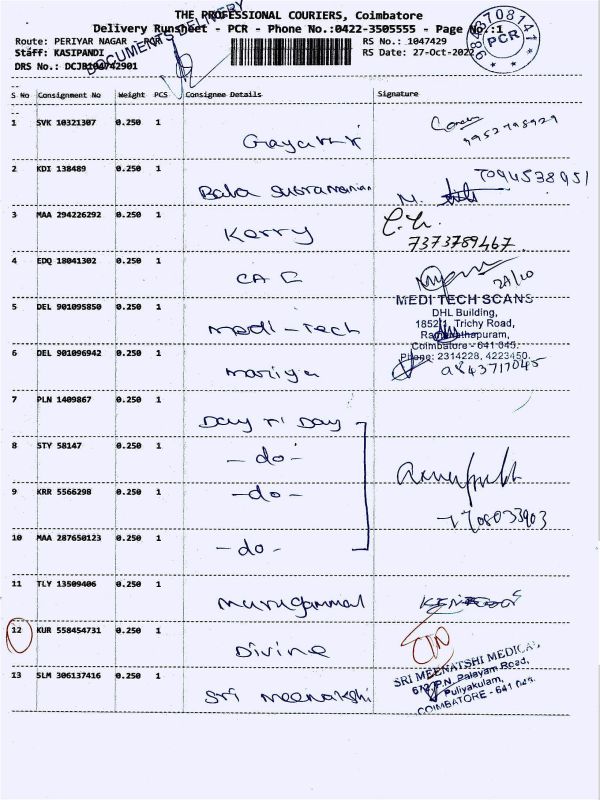 THE PROFESSIONAL COURIERS, Coimbatore
Delivery Runsheet - PCR - Phone No.:0422-3505555 - Page No.:1
Route: PERIYAR NAGAR - RS No.: 1047429
Staff: KASIPANDI RS Date: 27-Oct-2022
DRS No.: DCJB104742901
DOCUMENTS DELIVERY
PCR
S No Consignment No Weight PCS Consignee Details Signature
1 SVK 10321307 0.250 1 Gayatri
9952798929
2 KDI 138489 0.250 1 Bala Subramanian M.
7094538951
3 MAA 294226292 0.250 1 Kerry
7373789467
4 EDQ 18041302 0.250 1
MEDI TECH SCANS
DHL Building,
1852/1, Trichy Road,
Ramanathapuram,
Coimbatore - 641 045.
Phone: 2314228, 4223450.
5 DEL 901095850 0.250 1 Medi-Tech
6 DEL 901096942 0.250 1 Mariya
9843717045
7 PLN 1409867 0.250 1 Day n' Day
8 STY 58147 0.250 1 -do-
9 KRR 5566298 0.250 1 -do-
7708033903
10 MAA 287650123 0.250 1 -do-
11 TLY 13509406 0.250 1 Murugammal
12 KUR 558454731 0.250 1 Divine
13 SLM 306137416 0.250 1 Sri Meenakshi
SRI MEENATSHI MEDICAL,
P.N. Palayam Road,
Puliyakulam,
COIMBATORE - 641 045.